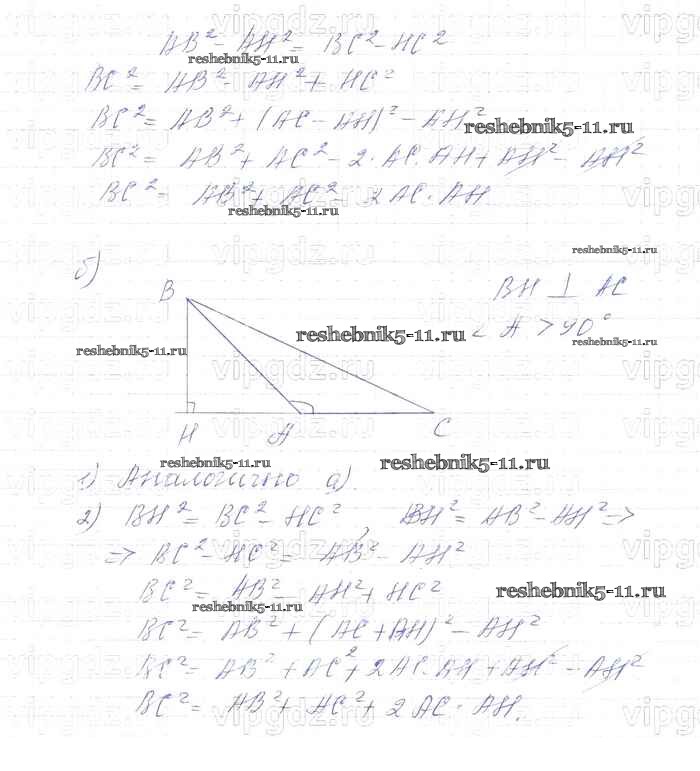 AB² - AH² = BC² - HC²
reshebnik5-11.ru
BC² = AB² - AH² + HC²
BC² = AB² + (AC - AH)² - AH²
reshebnik5-11.ru
BC² = AB² + AC² - 2·AC·AH + AH² - AH²
BC² = AB² + AC² - 2AC·AH
reshebnik5-11.ru
reshebnik5-11.ru
б)
B
BH ⊥ AC
reshebnik5-11.ru
∠A > 90°
reshebnik5-11.ru
reshebnik5-11.ru
H A C
reshebnik5-11.ru
reshebnik5-11.ru
1) Аналогично а).
2) BH² = BC² - HC², BH² = AB² - AH² =>
=> BC² - HC² = AB² - AH²
BC² = AB² - AH² + HC²
reshebnik5-11.ru
reshebnik5-11.ru
BC² = AB² + (AC + AH)² - AH²
BC² = AB² + AC² + 2AC·AH + AH² - AH²
BC² = AB² + AC² + 2AC·AH.
vipgdz.ru